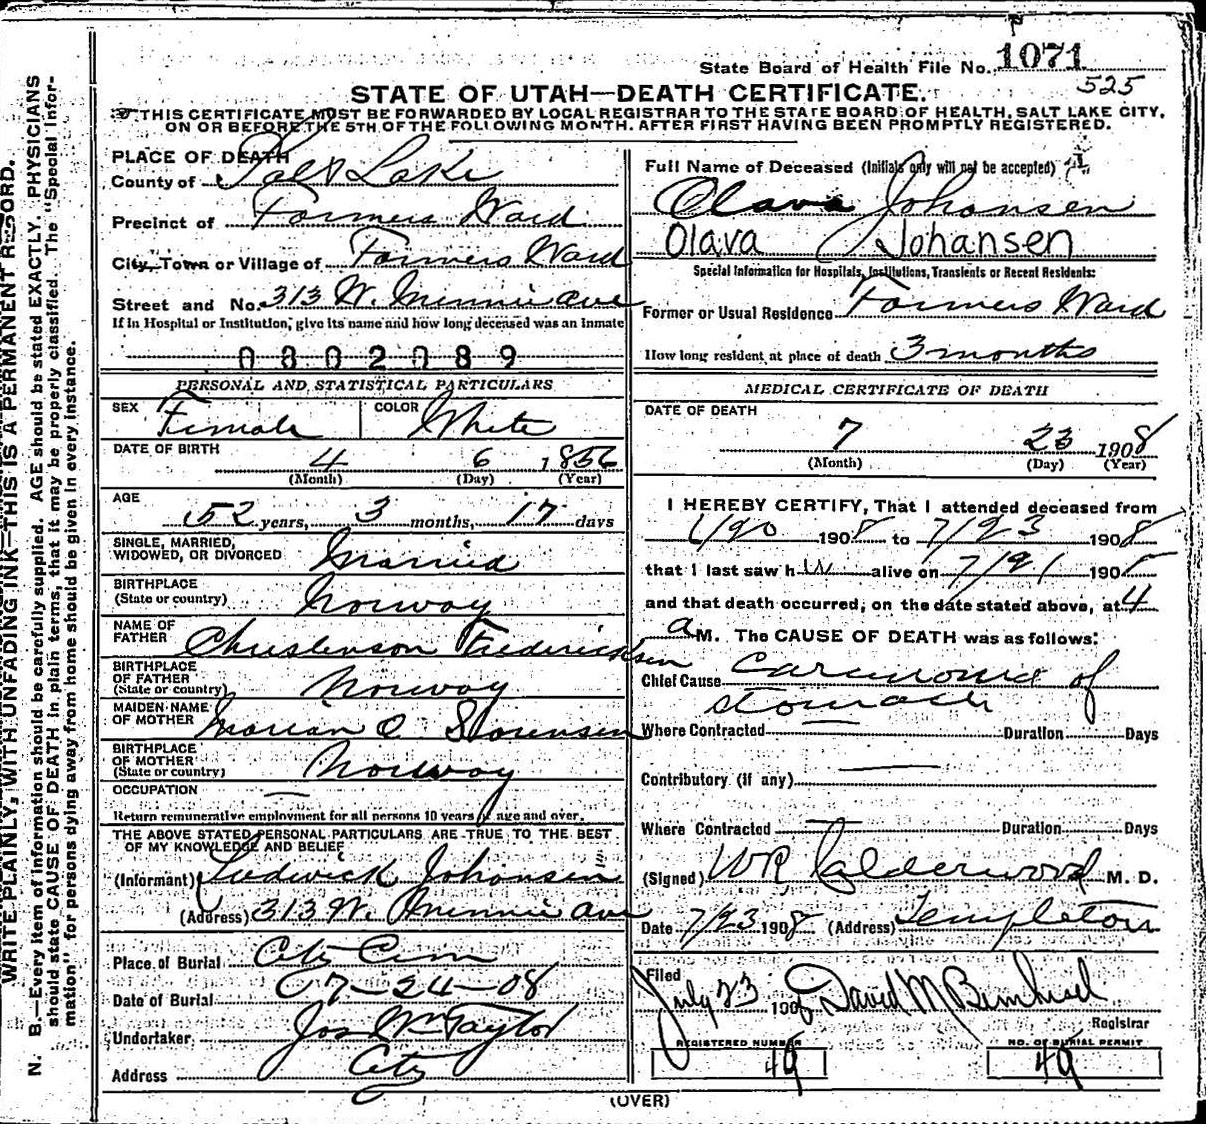 State Board of Health File No. 1071
525
STATE OF UTAH—DEATH CERTIFICATE.
THIS CERTIFICATE MUST BE FORWARDED BY LOCAL REGISTRAR TO THE STATE BOARD OF HEALTH, SALT LAKE CITY,
ON OR BEFORE THE 5TH OF THE FOLLOWING MONTH. AFTER FIRST HAVING BEEN PROMPTLY REGISTERED.
WRITE PLAINLY, WITH UNFADING INK—THIS IS A PERMANENT RECORD.
N. B.—Every item of information should be carefully supplied. AGE should be stated EXACTLY. PHYSICIANS
should state CAUSE OF DEATH in plain terms, that it may be properly classified. The "Special Infor-
mation" for persons dying away from home should be given in every instance.
PLACE OF DEATH
County of Salt Lake
Precinct of Farmers Ward
City, Town or Village of Farmers Ward
Street and No. 313 W. Minnie Ave
If in Hospital or Institution, give its name and how long deceased was an Inmate
0302089
PERSONAL AND STATISTICAL PARTICULARS
SEX Female COLOR White
DATE OF BIRTH
4 6 1856
(Month) (Day) (Year)
AGE
52 years, 3 months, 17 days
SINGLE, MARRIED,
WIDOWED, OR DIVORCED Married
BIRTHPLACE
(State or country) Norway
NAME OF
FATHER Christenson Fredericksen
BIRTHPLACE
OF FATHER
(State or country) Norway
MAIDEN NAME
OF MOTHER Marian O Sorensen
BIRTHPLACE
OF MOTHER
(State or country) Norway
OCCUPATION —
Return remunerative employment for all persons 10 years of age and over.
THE ABOVE STATED PERSONAL PARTICULARS ARE TRUE TO THE BEST
OF MY KNOWLEDGE AND BELIEF
(Informant) Ludwick Johansen
(Address) 313 W. Minnie Ave
Place of Burial City Cem
Date of Burial 7-24-08
Undertaker Jos Wm Taylor
Address City
Full Name of Deceased (Initials only will not be accepted)
Olava Johansen
Olava Johansen
Special Information for Hospitals, Institutions, Transients or Recent Residents:
Former or Usual Residence Farmers Ward
How long resident at place of death 3 months
MEDICAL CERTIFICATE OF DEATH
DATE OF DEATH
7 23 1908
(Month) (Day) (Year)
I HEREBY CERTIFY, That I attended deceased from
1908 to 7/23 1908
that I last saw h alive on 7/21 1908
and that death occurred, on the date stated above, at 4
a M. The CAUSE OF DEATH was as follows:
Chief Cause Carcinoma of
stomach
Where Contracted — Duration Days
Contributory (if any) —
Where Contracted — Duration Days
(Signed) WR Calderwood M. D.
Date 7/23 1908 (Address) Templeton
Filed
July 23 1908 David M Bernhisel
Registrar
REGISTERED NUMBER
49
NO. OF BURIAL PERMIT
49
(OVER)